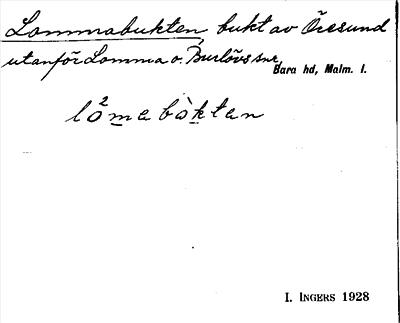 Lommabukten, bukt av Öresund
utanför Lomma o. Burlövs snr,
Bara hd, Malm. l.
lo²mebòktan
I. INGERS 1928